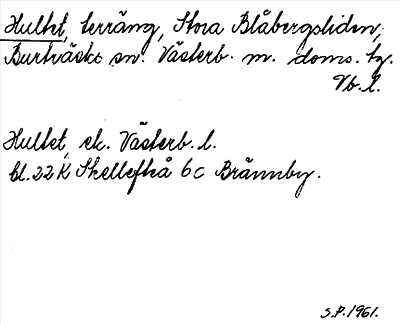 Hultet, terräng, Stora Blåbergsliden,
Burträsks sn. Västerb. m. doms. tg.
Vb. l.
Hultet, ek. Västerb. l.
bl. 22 K Skellefteå 6 c Brännby.
S.P. 1961.